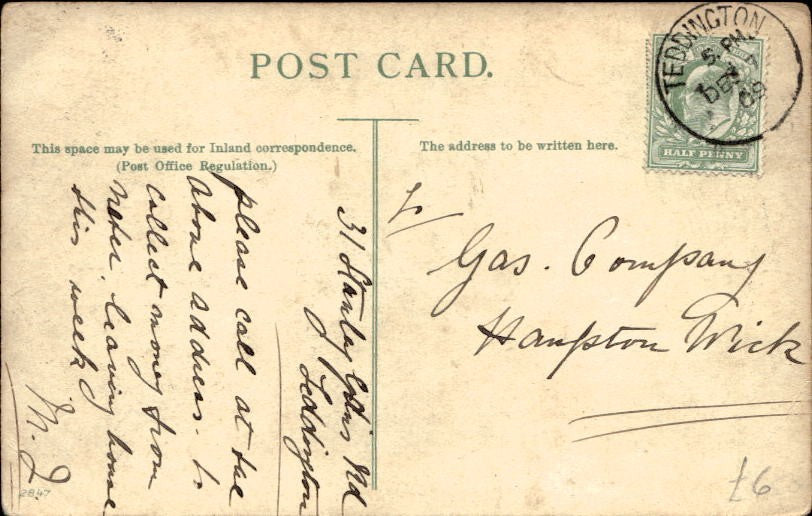 POST CARD.
This space may be used for Inland correspondence.
(Post Office Regulation.)
The address to be written here.
TEDDINGTON
5 PM
DE
09
HALF PENNY
31 Stanley Gdns Rd
Teddington
please call at the
above address to
collect money from
meter. leaving home
this week
To
Gas. Company
Hampton Wick
2847
£6